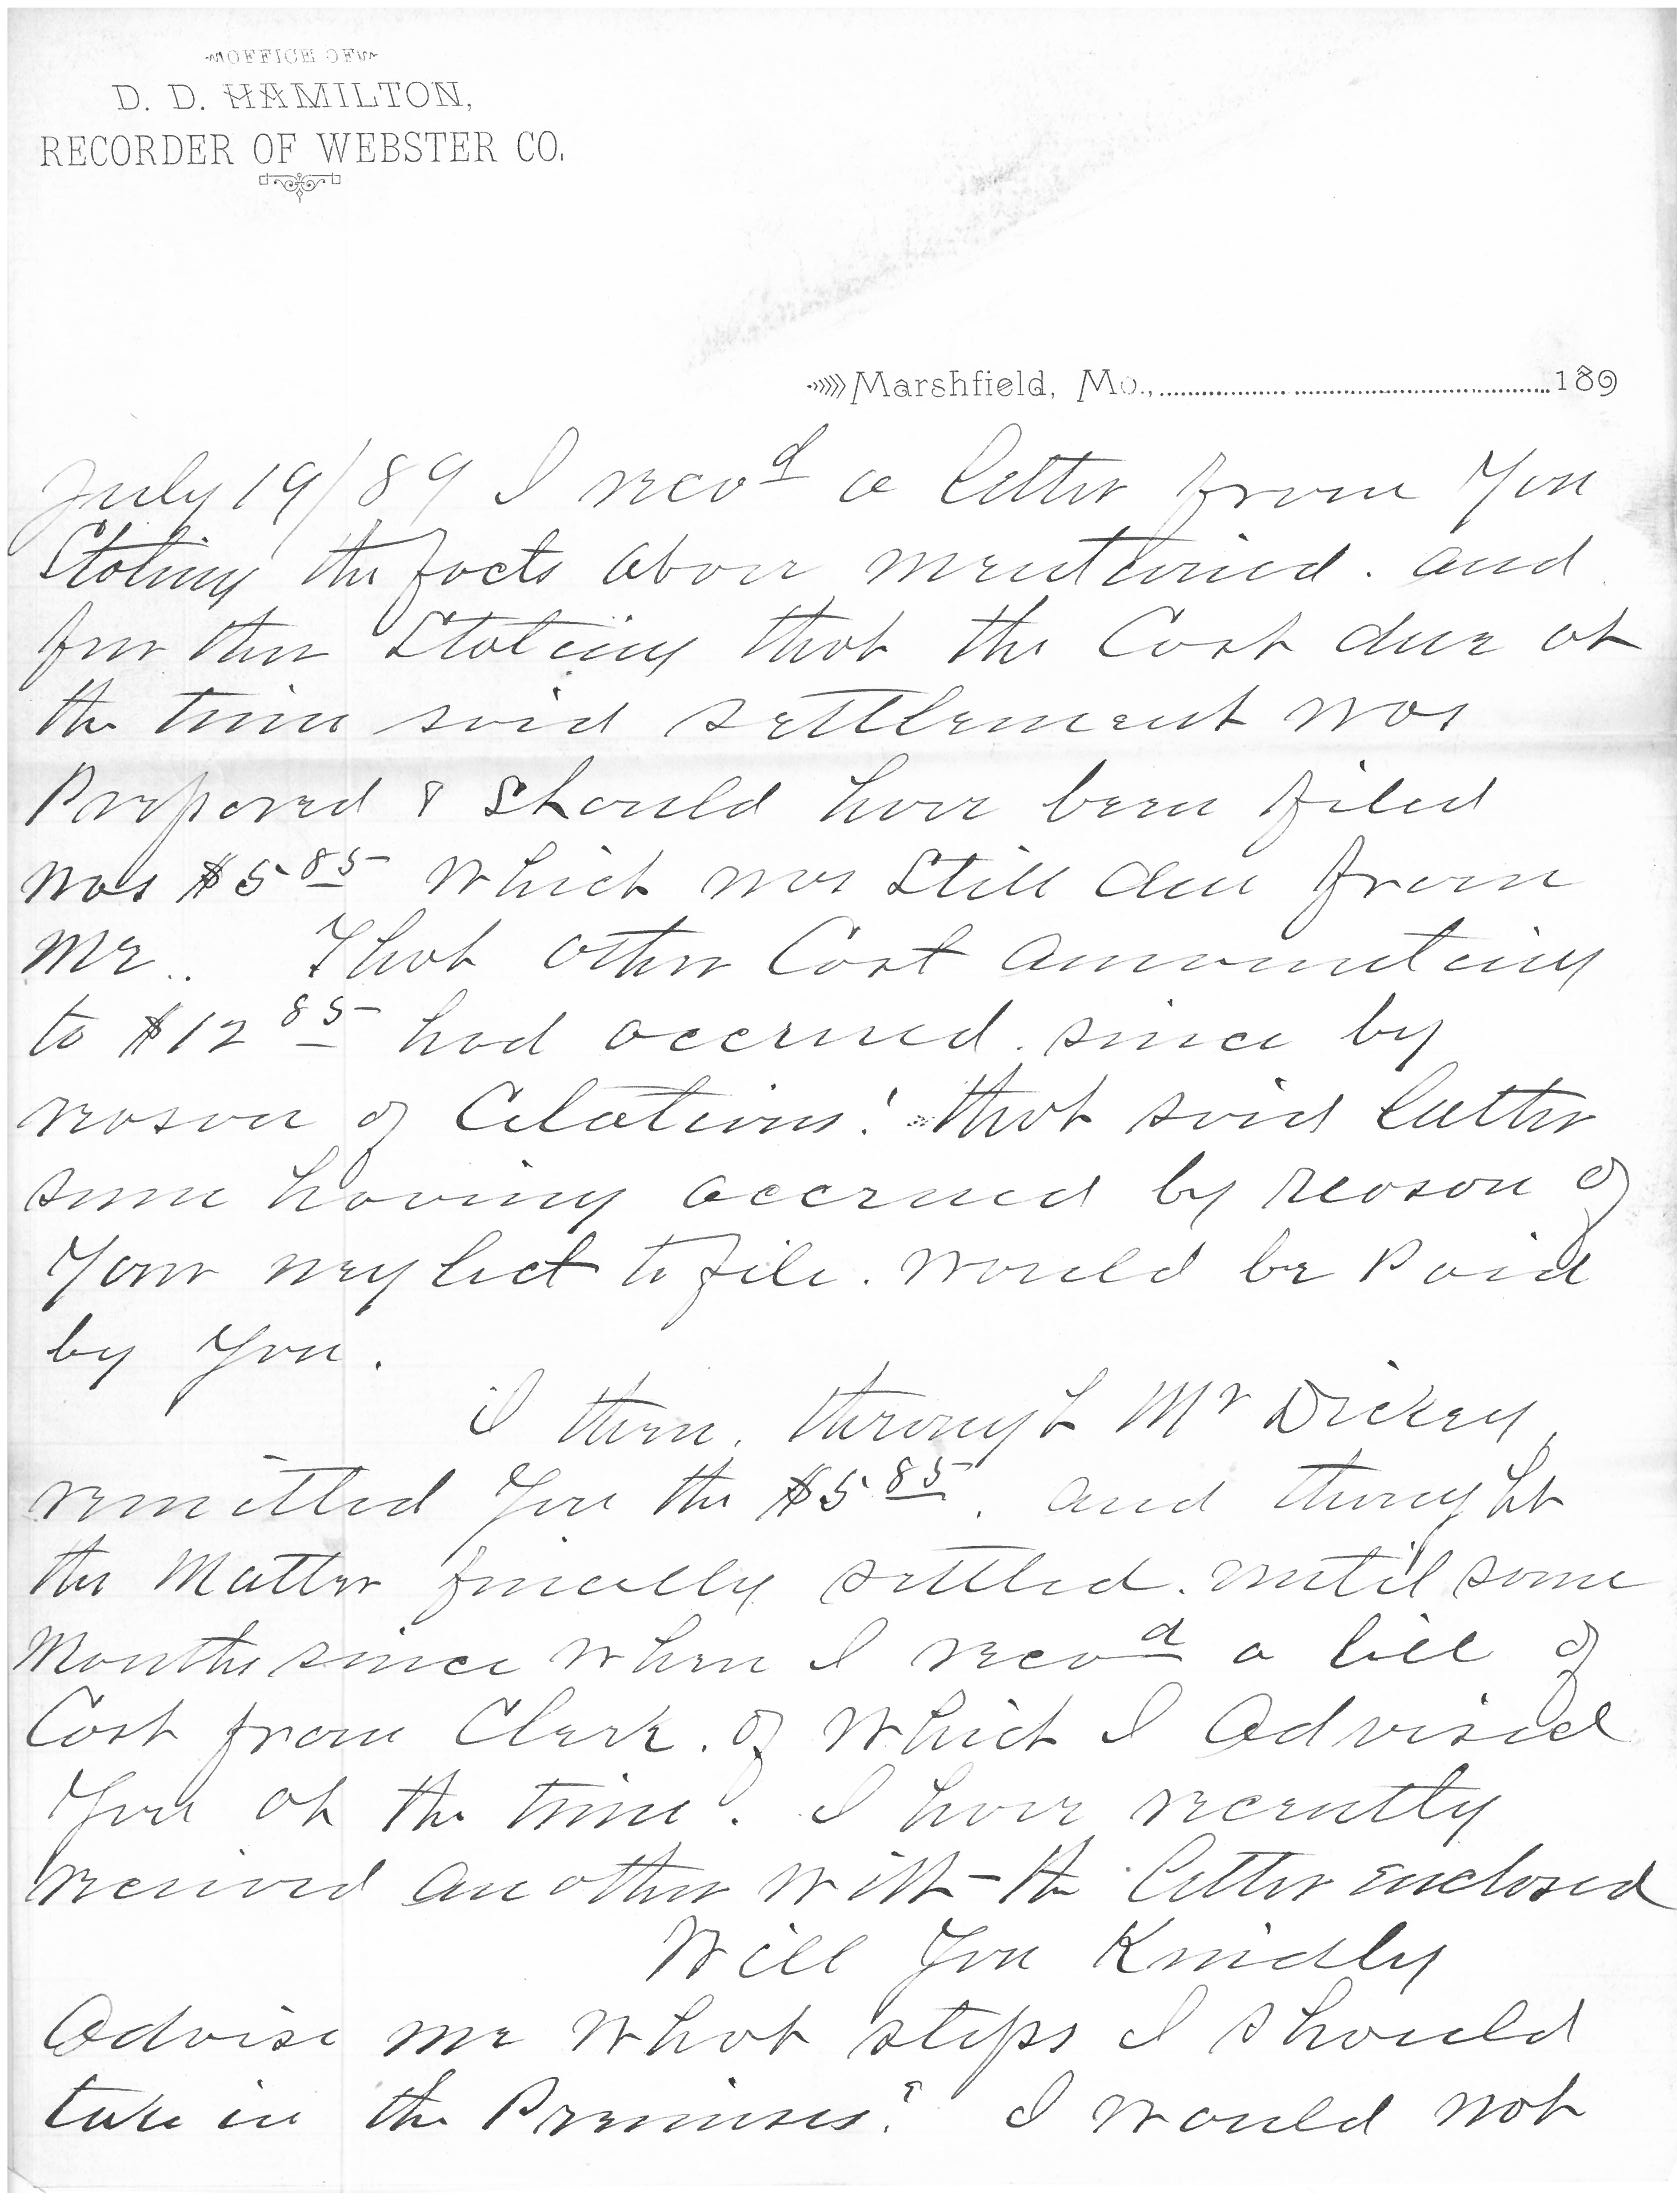 OFFICE OF
D. D. HAMILTON,
RECORDER OF WEBSTER CO.
Marshfield, Mo., 189
July 19/89 I recvd a letter from You
Stating the facts above mentioned. and
further Stating that the Cost due at
the time said settlement was
Prepared & Should have been filed
was $5 85 which was Still due from
me. That other Cost amounting
to $12 85 had accrued since by
reason of Citations! that said latter
sum having accrued by reason of
Your neglect to file. would be Paid
by You.
I then, through Mr Dickey,
remitted You the $5 85. and thought
the Matter finally settled. until some
Months since when I recvd a bill of
Cost from Clerk. of which I Advised
You at the time. I have recently
recieved another with the letter enclosed
Will You Kindly
Advise me what steps I should
take in the Premises? I would not